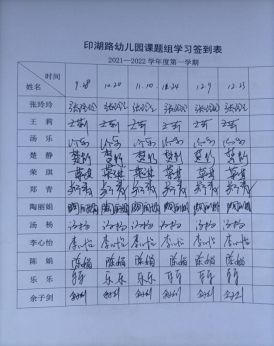 印湖路幼儿园课题组学习签到表
2021—2022学年度第一学期
时间 姓名 9.28 10.20 11.10 12.9 12.23
张玲玲 张玲玲 张玲玲 张玲玲 张玲玲 张玲玲 张玲玲
王莉 王莉 王莉 王莉 王莉 王莉 王莉
汤乐 汤乐 汤乐 汤乐 汤乐 汤乐 汤乐
楚静 楚静 楚静 楚静 楚静 楚静 楚静
荣琪 荣琪 荣琪 荣琪 荣琪 荣琪 荣琪
郑青 郑青 郑青 郑青 郑青 郑青 郑青
陶丽娟 陶丽娟 陶丽娟 陶丽娟 陶丽娟 陶丽娟 陶丽娟
汤杨 汤杨 汤杨 汤杨 汤杨 汤杨 汤杨
李心怡 李心怡 李心怡 李心怡 李心怡 李心怡 李心怡
陈娟 陈娟 陈娟 陈娟 陈娟 陈娟 陈娟
乐乐 乐乐 乐乐 乐乐 乐乐 乐乐 乐乐
余子剑